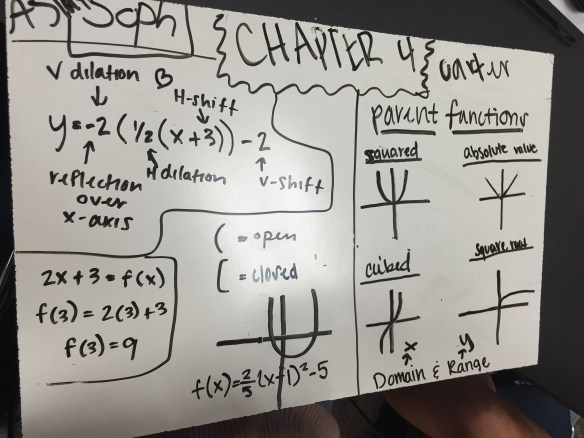 Soph
CHAPTER 4
carter
V dilation
H-shift
y=-2(1/2(x+3))-2
reflection
over
x-axis
H dilation
V-shift
2x+3=f(x)
f(3)=2(3)+3
f(3)=9
( = open
[ = closed
f(x)=2/5(x-1)²-5
parent functions
squared
absolute value
cubed
square root
x
y
Domain & Range